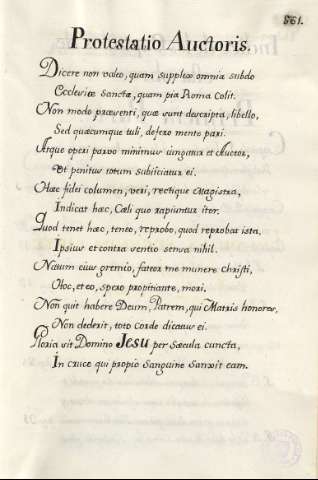 861.
Protestatio Auctoris.
Dicere non valeo, quam supplex omnia subdo
Ecclesiæ Sanctæ, quam pia Roma colit.
Non modo præsenti, quæ sunt descripta, libello,
Sed quæcumque tuli, defero mente pari.
Atque operi parvo minimus jungatur et Auctor,
Et penitus totum subjiciatur ei.
Hæc fidei columen, veri, rectique Magistra,
Indicat hæc, Cæli quo rapiuntur iter.
Quod tenet hæc, teneo, reprobo, quod reprobat ista.
Ipsius et contra sentio sensa nihil.
Natum ejus gremio, fateor me munere Christi,
Hoc, et eo, spero propitiante, mori.
Non quit habere Deum, Patrem, qui Matris honores,
Non dederit, toto corde dicatus ei.
Gloria sit Domino Jesu per sæcula cuncta,
In cruce qui proprio Sanguine Sanxit eam.